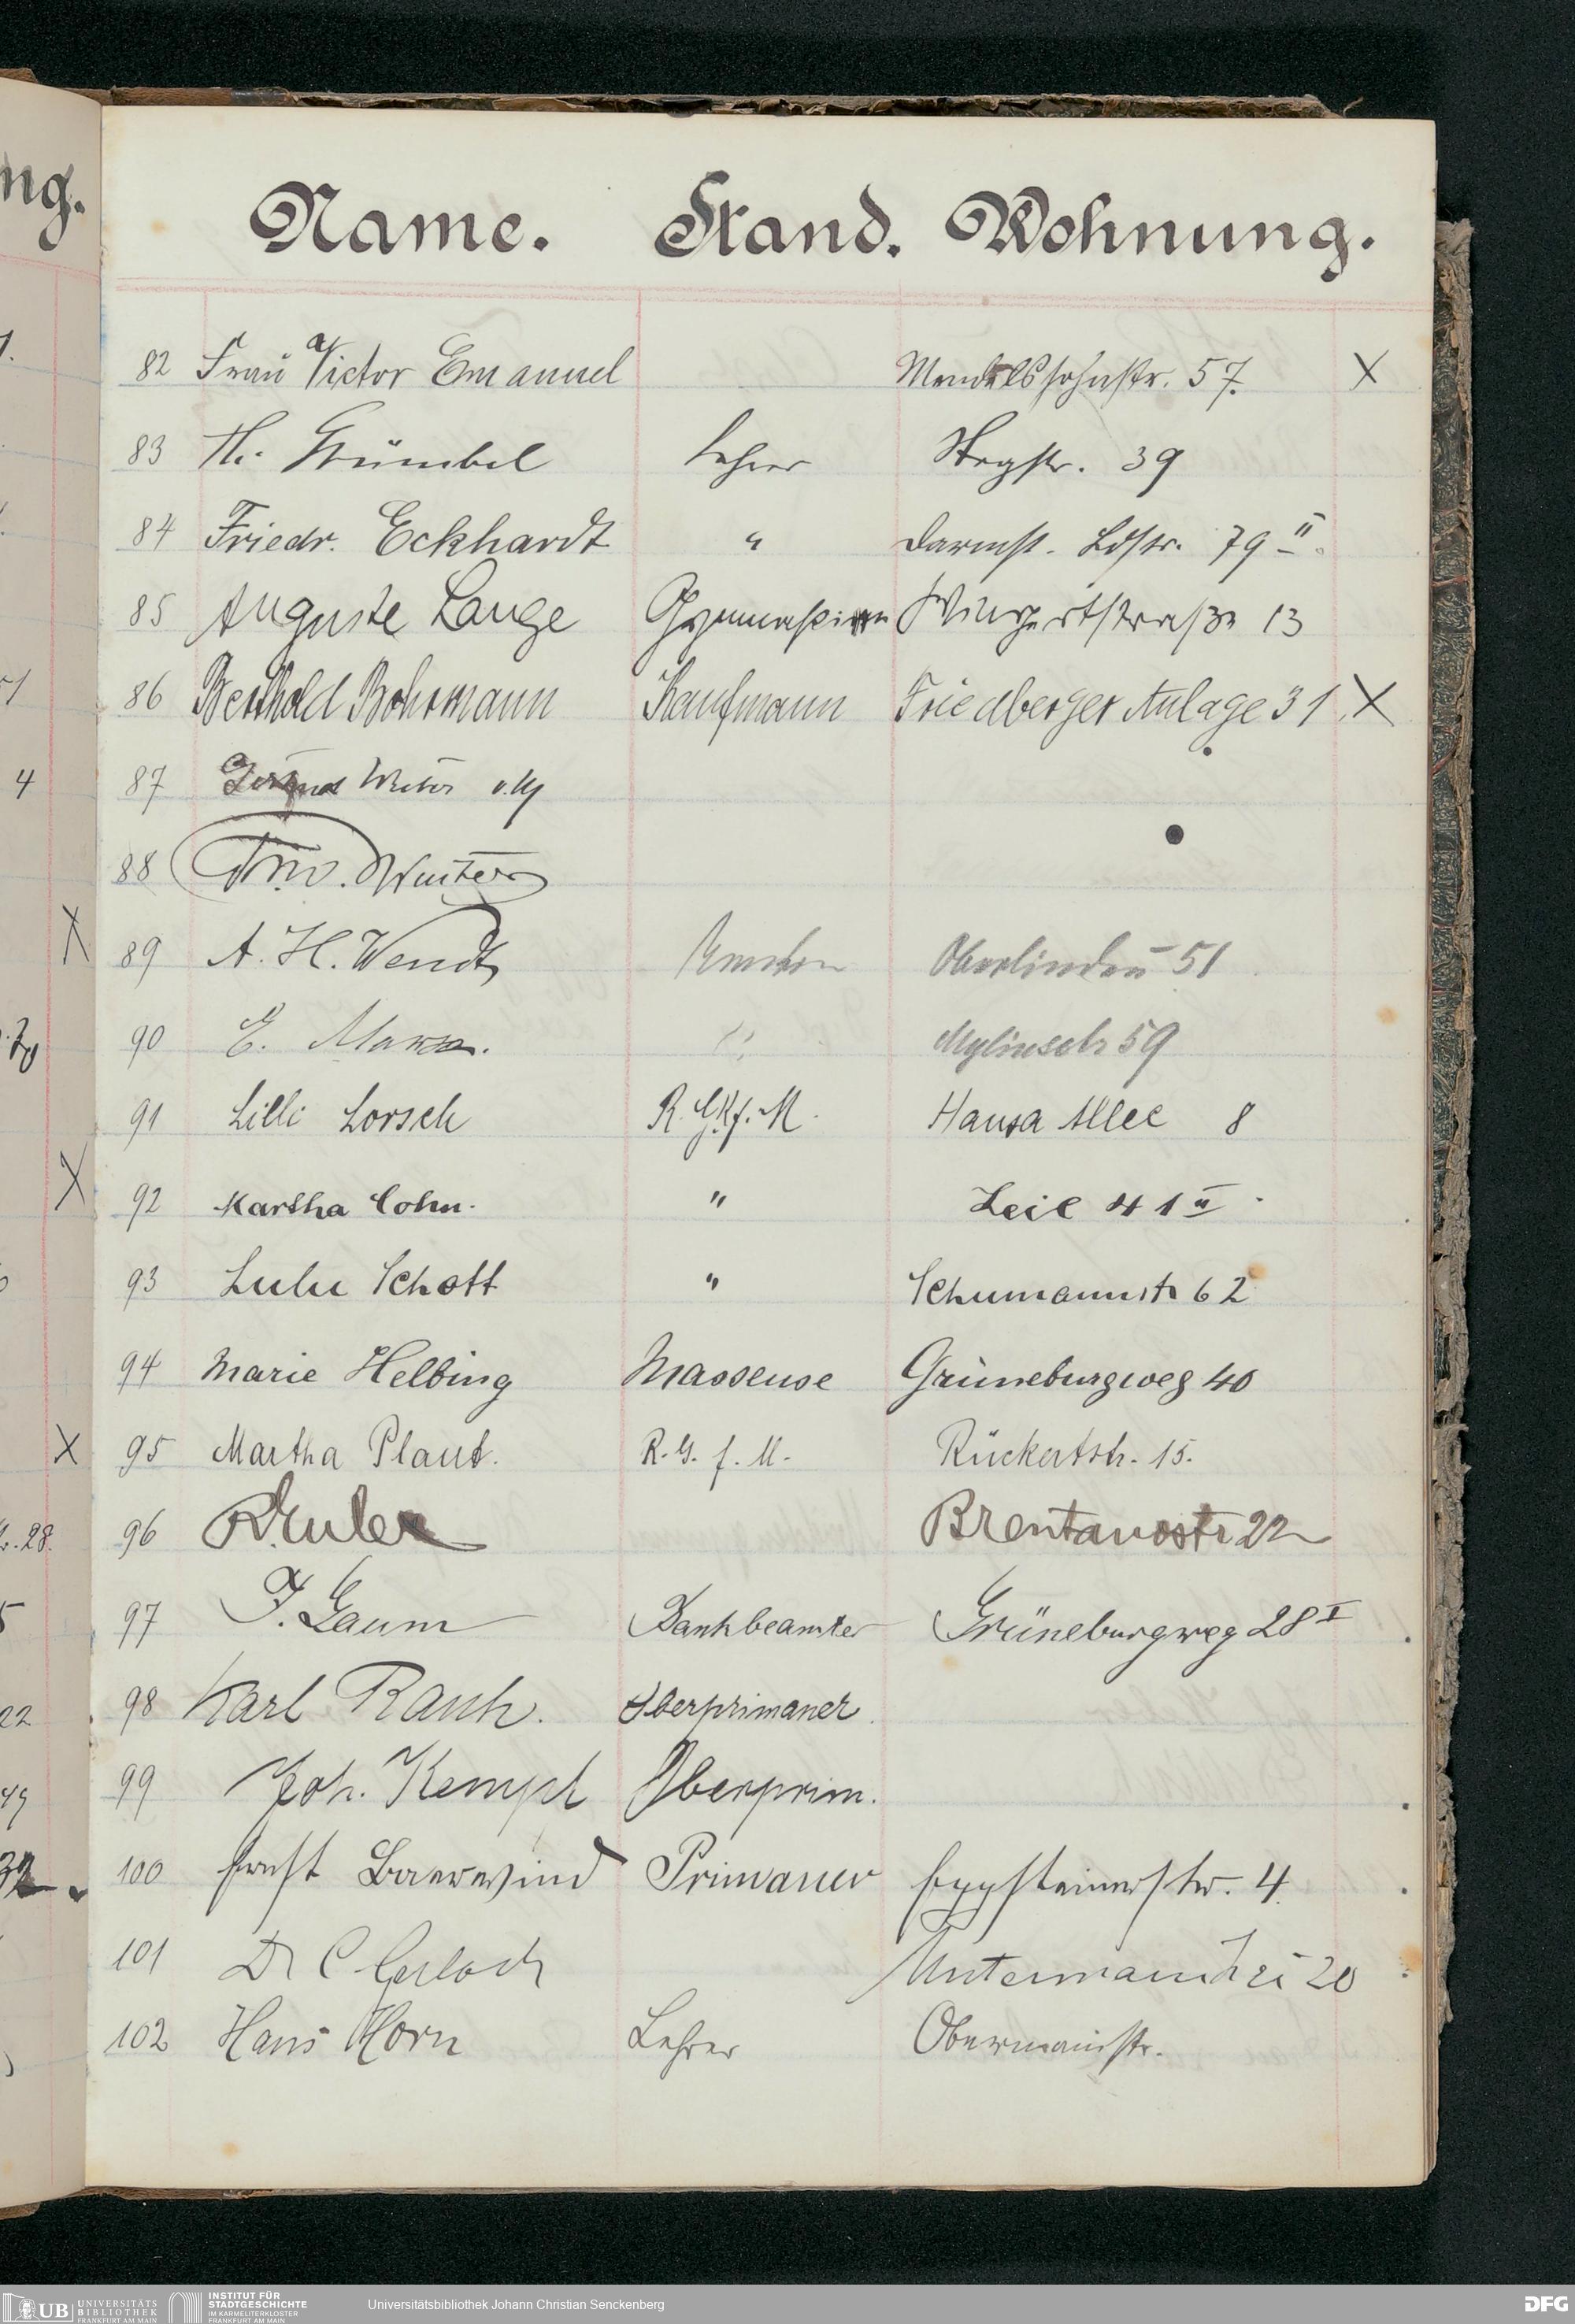 ng.
Name. Stand. Wohnung.
82 Frau Victor Emanuel Mendelssohnstr. 57. X
83 Th. Stümbel Lehrer Stegstr. 39
84 Friedr. Eckhardt " Darmst. Ldstr. 79 II.
85 Auguste Lange Wingertstraße 13
86 Berthold Bohrmann Kaufmann Friedberger Anlage 31 X
4
87
88 Winter
X 89 A. H. Wendt Rentner Oberlindau 51
90 E. " Myliusstr 59
91 Lilli Lorsch R. G. f. M. Hansa Allee 8
X 92 Martha Cohn. " Zeil 41 II
93 Lulu Schott " Schumannstr 62
94 Marie Helbing Masseuse Grüneburgweg 40
X 95 Martha Plaut. R. G. f. M. Rückertstr. 15.
28. 96 Brentanostr 22
97 J. Gaum Bankbeamter Grüneburgweg 28 I
22 98 Karl Rauh. Oberprimaner.
99 Joh. Kempf Oberprim.
32 100 Ernst Baerwind Primaner Eppsteinerstr. 4.
101 Dr C Gerlach Untermainkai 20
102 Hans Horn Lehrer Obermainstr.
UB UNIVERSITÄTS BIBLIOTHEK FRANKFURT AM MAIN
INSTITUT FÜR STADTGESCHICHTE IM KARMELITERKLOSTER FRANKFURT AM MAIN
Universitätsbibliothek Johann Christian Senckenberg
DFG